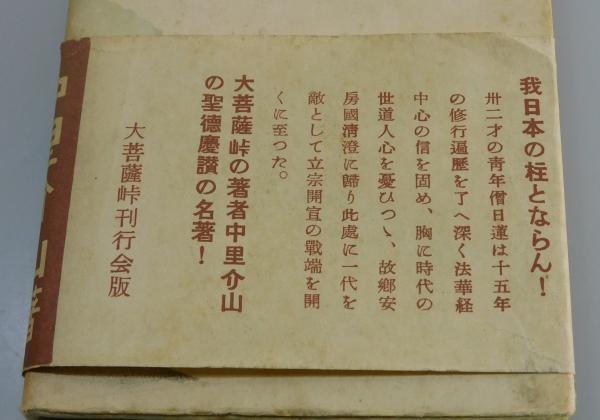 我日本の柱とならん！
卅二才の青年僧日蓮は十五年
の修行遍歴を了へ深く法華経
中心の信を固め、胸に時代の
世道人心を憂ひつゝ、故郷安
房國清澄に歸り此處に一代を
敵として立宗開宣の戰端を開
くに至つた。
大菩薩峠の著者中里介山
の聖德慶讃の名著！
大菩薩峠刊行会版